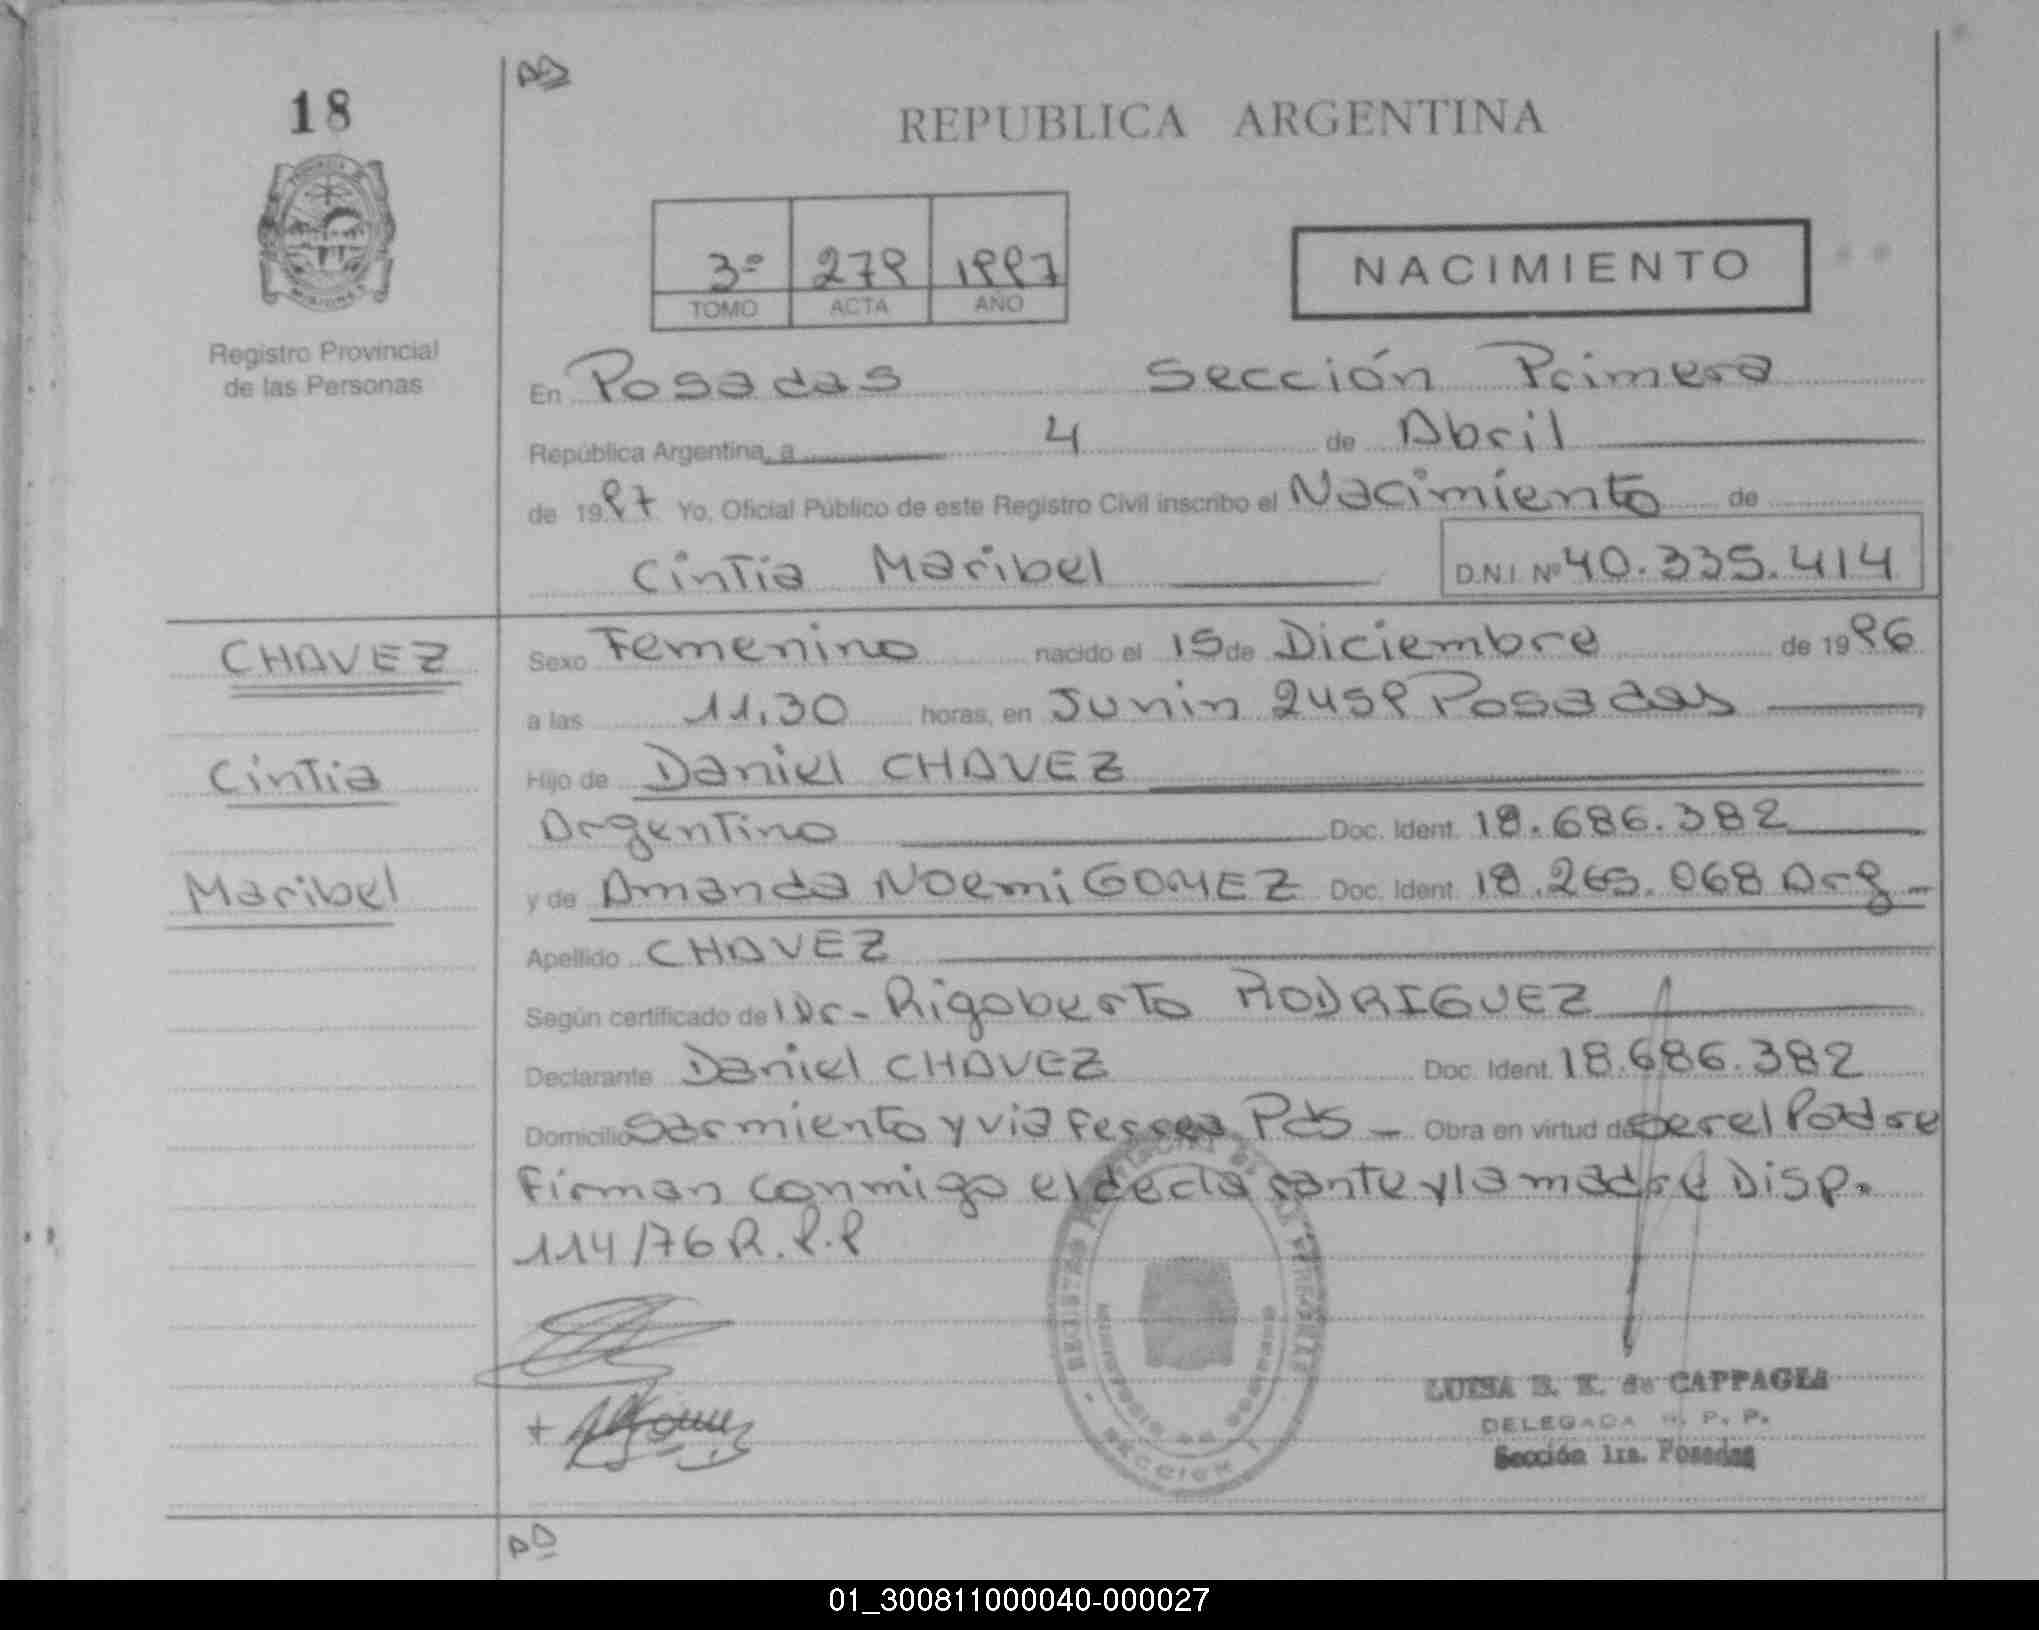 18
REPUBLICA ARGENTINA
3º 279 1997
TOMO ACTA AÑO
NACIMIENTO
Registro Provincial
de las Personas
En Posadas Sección Primera
República Argentina, a 4 de Abril
de 1997 Yo, Oficial Público de este Registro Civil inscribo el Nacimiento de
Cintia Maribel D.N.I. Nº 40.335.414
CHAVEZ
Cintia
Maribel
Sexo Femenino nacido el 15 de Diciembre de 1996
a las 11,30 horas, en Junin 2459 Posadas
Hijo de Daniel CHAVEZ
Argentino Doc. Ident. 18.686.382
y de Amanda Noemi GOMEZ Doc. Ident. 18.265.068 Arg
Apellido CHAVEZ
Según certificado del Dr- Rigoberto RODRIGUEZ
Declarante Daniel CHAVEZ Doc. Ident. 18.686.382
Domicilio Sarmiento y via Ferrea Pdas - Obra en virtud de ser el Padre
Firman conmigo el declarante y la madre Disp.
114/76 R.P.P
LUISA B. K. de CAPPAGLI
DELEGADA R. P. P.
Sección 1ra. Posadas
SECCION 1
01_300811000040-000027